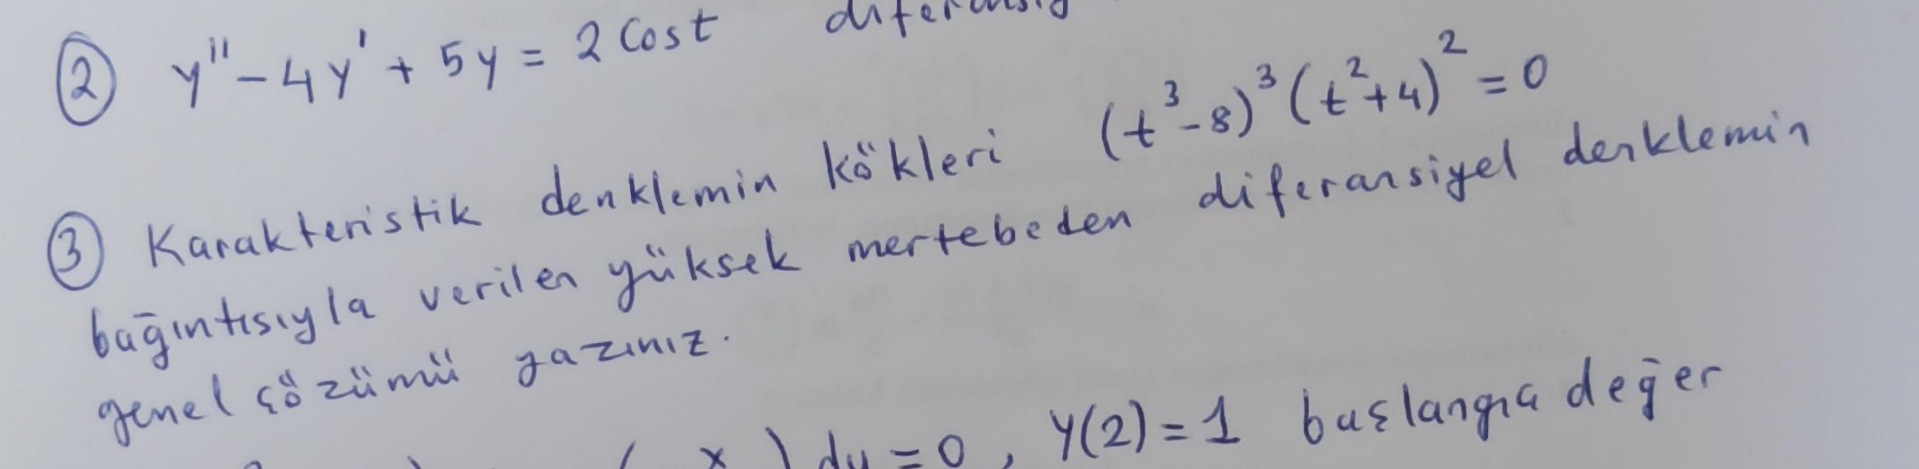 ② y'' - 4y' + 5y = 2 Cost
③ Karakteristik denklemin kökleri (t³-8)³(t²+4)² = 0
bağıntısıyla verilen yüksek mertebeden diferansiyel denklemin
genel çözümü yazınız.
) dy = 0, y(2) = 1 başlangıç değer